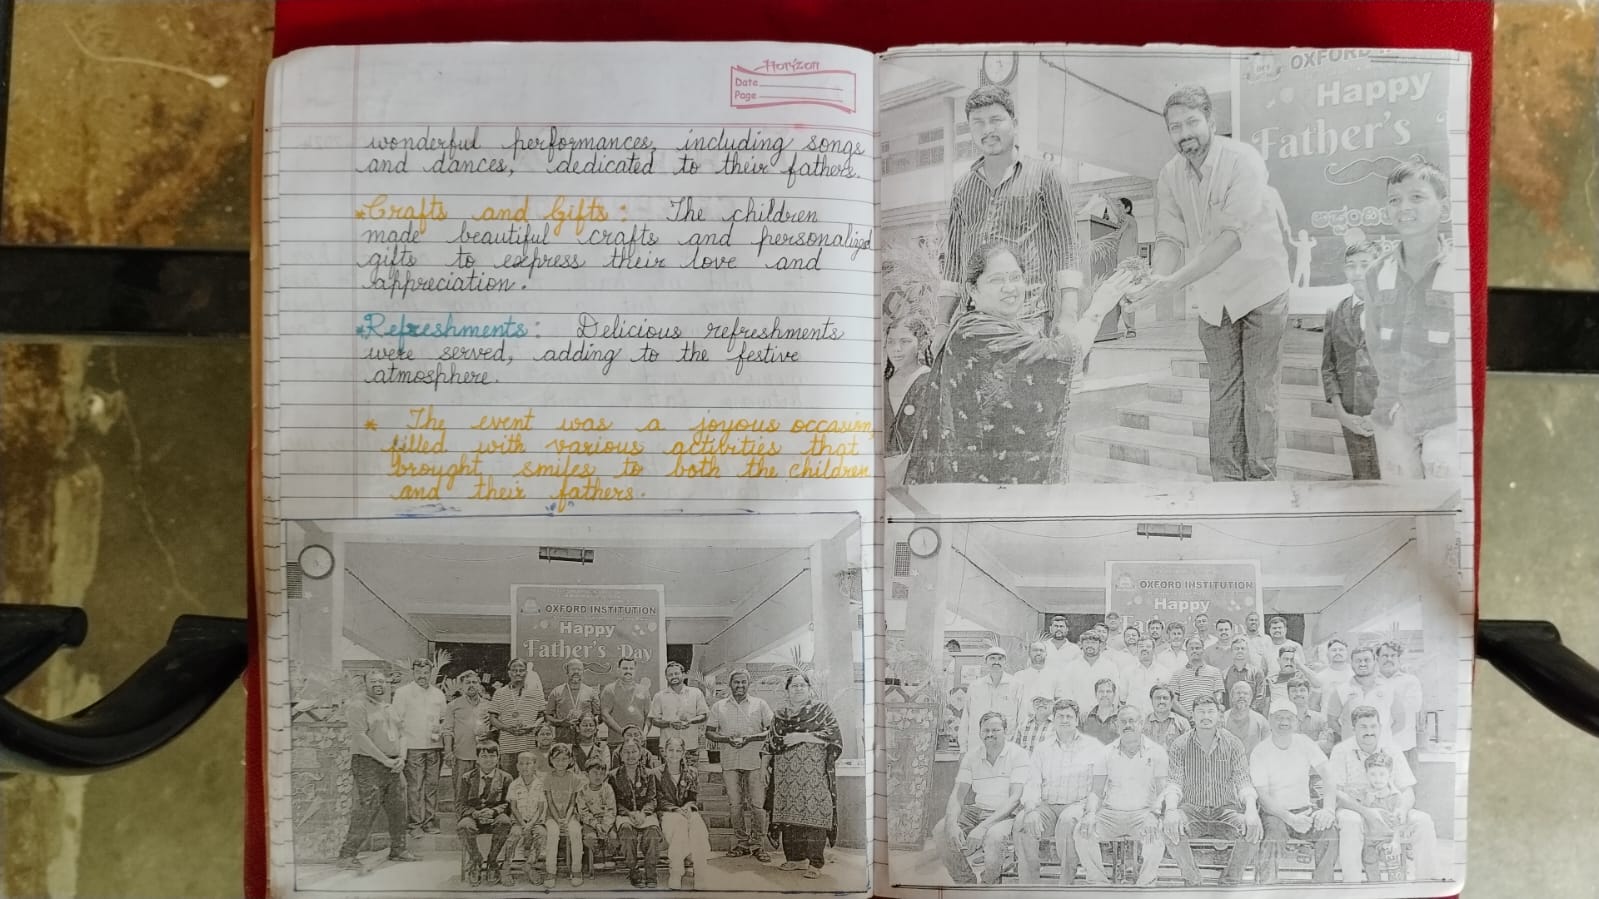 Horizon
Date
Page
wonderful performances, including songs
and dances, dedicated to their fathers.
*Crafts and Gifts: The children
made beautiful crafts and personalized
gifts to express their love and
appreciation.
*Refreshments: Delicious refreshments
were served, adding to the festive
atmosphere.
* The event was a joyous occasion,
filled with various activities that
brought smiles to both the children
and their fathers.
OXFORD INSTITUTION
Happy
Father's Day
OXFORD
Happy
Father's
OXFORD INSTITUTION
Happy